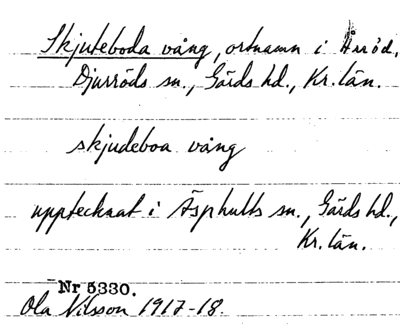 Skjuteboda vång, ortnamn i Årröd,
Djurröds sn., Gärds hd., Kr. län.
skjudeboa vång
upptecknat i Äsphults sn., Gärds hd.,
Kr. län.
Nr 5330.
Ola Nilsson 1917-18.